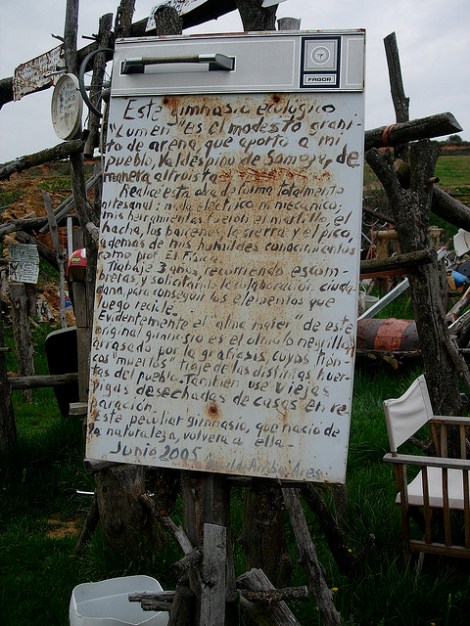 FAGOR
Este gimnasio ecológico
"Lumen" es el modesto grani
to de arena que aporto a mi
pueblo, Valdespino de Somoza, de
manera altruista
Realicé esta obra de forma totalmente
artesanal: nada eléctrico ni mecánico;
mis herramientas fueron el martillo, el
hacha, los barrenos, la sierra y el pico,
además de mis humildes conocimientos
como prof. E. Física.
Trabajé 3 años, recorriendo escom-
breras y solicitando la colaboración ciuda-
dana para conseguir los elementos que
luego reciclé.
Evidentemente el "alma mater" de este
original gimnasio es el olmo o negrillo
arrasado por la grafiosis cuyos tron-
cos "muertos" traje de las distintas huer-
tas del pueblo. También use viejas
vigas desechadas de casas en re-
paración.
Este peculiar gimnasio, que nació de
la naturaleza, volverá a ella.-
Junio 2005